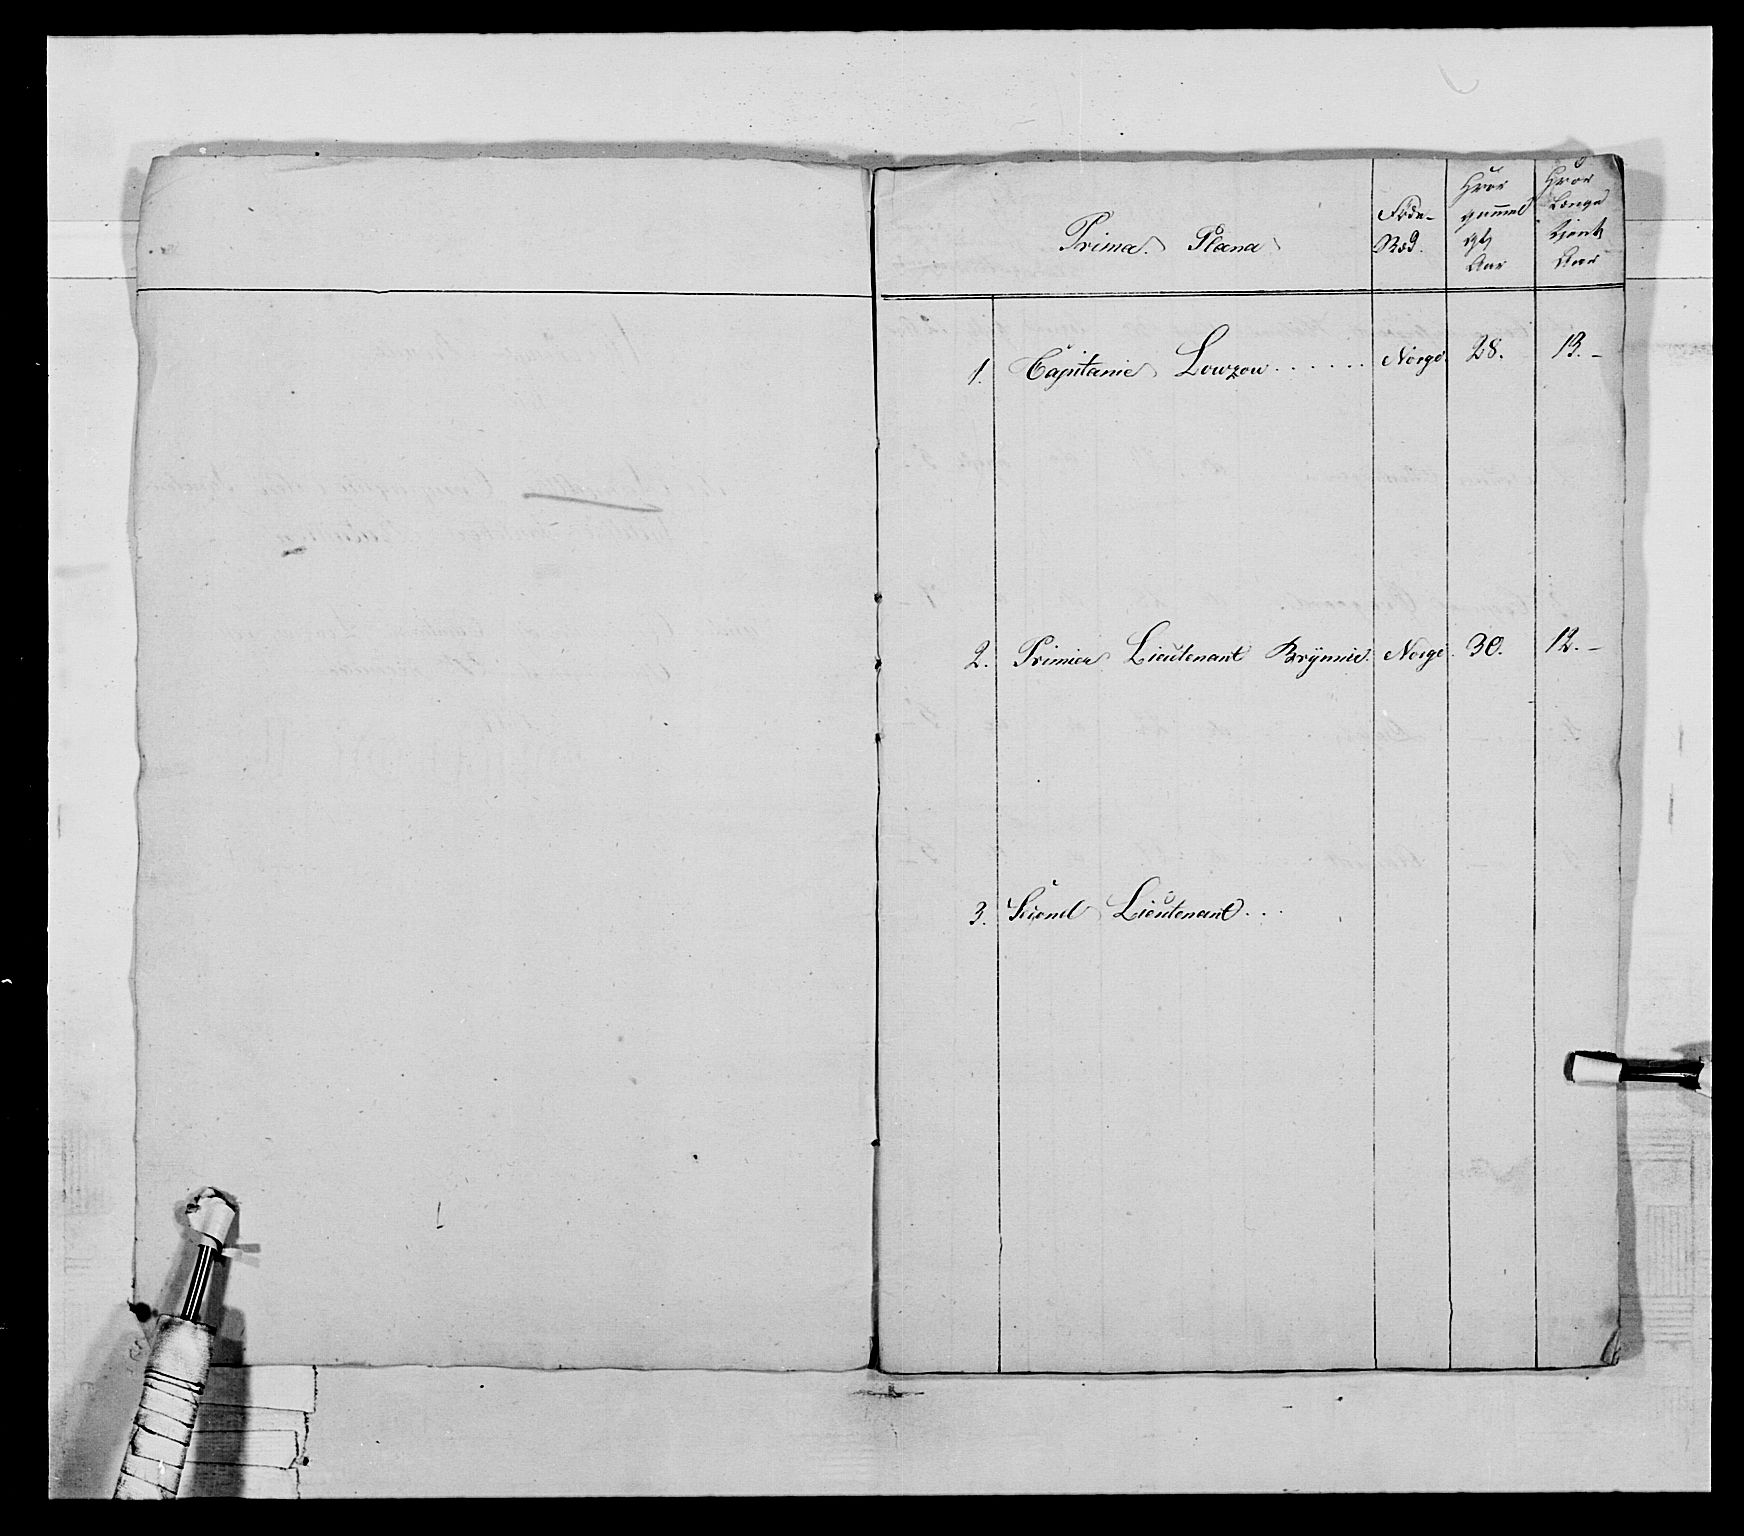 Prima Plana
Föde-
Stæd.
Hvor
gammel
Aar
Hvor
Længe
tjent
Aar
1. Capitaine Lowzow...... Norge. 28. 13.-
2. Primier Lieutenant Brÿnnie. Norge. 30. 12.-
3. Second Lieutenant...